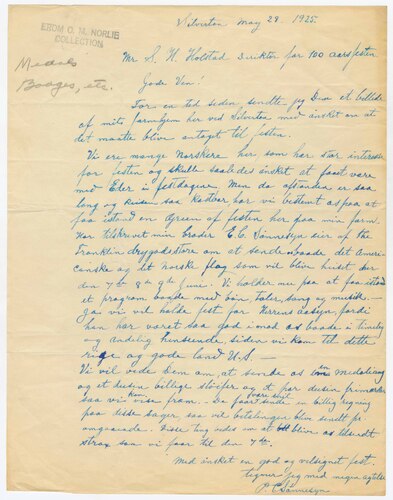 FROM O. M. NORLIE
COLLECTION
Medals
Badges, etc.
Silverton May 28. 1925.
Mr S. H. Holstad Direktør for 100 aarsfesten
Gode Ven!
For en tid siden sendte jeg Dem et billede
af mits farmhjem her ved Silverton med ønsket om at
det maatte blive antagt til festen.
Vi ere mange Nordkere her, som har stor interesse
for festen og skulle saaledes ønsket at faaet være
med Eder i festdagene. Men da afstanden er saa
long og saa kostbar har vi bestemt os paa at
faa istand en af festen her paa min farm
Har tilskrevet min Broder E. C. Tønnesyn eier of the
Franklin drygoods store om at sende os baade det Ameri-
canske og det norske flag som vil blive heist her
den 7de 8 9de june. Vi holder nu paa at faa istand
et program baade med bøn taler, sang og musik. —
Ja vi vil holde fest for Herrens aasyn, fordi
han har været saa god imod os baade i timelig
og aandelig henseende, siden vi kom til dette
rige og gode land U.S. —
Vi vil bede Dem om, at sende os en medaliering
og et dusin billige og et par dusin
saa vi kan vise frem. De faar sende en billig regning
paa disse sager saa vil betalingen blive sendt pr
omgaaende. Disse ting vilde om at blive os tilsendt
strax saa vi faar til den 7de.
Med ønsket en god og velsignet fest.
tegner jeg med megen agtelse
P. C. Tønnesyn